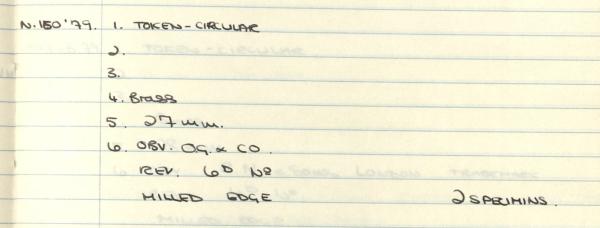 N.150'79. 1. TOKEN-CIRCULAR
2.
3.
4. Brass
5. 27mm.
6. OBV. O.G. & CO.
REV. 6D No
MILLED EDGE 2 SPECIMINS.